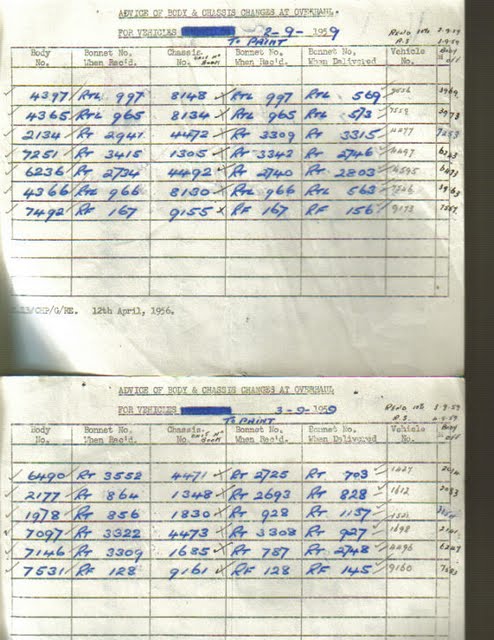 ADVICE OF BODY & CHASSIS CHANGES AT OVERHAUL
FOR VEHICLES 2-9-1959
TO PAINT
Body No. Bonnet No. When Rec'd. Chassis. No. Bonnet No. When Rec'd. Bonnet No. When Delivered Vehicle No.
4397 RTL 997 8148 RTL 997 RTL 569
4365 RTL 965 8134 RTL 965 RTL 573 7559
2134 RT 2941 4472 RT 3309 RT 3315 4277
7251 RT 3415 1305 RT 3342 RT 2746
6236 RT 2734 4492 RT 2740 RT 2803 4595
4366 RTL 966 8130 RTL 966 RTL 563
7492 RF 167 9155 RF 167 RF 156 9173
12th April, 1956.
ADVICE OF BODY & CHASSIS CHANGES AT OVERHAUL
FOR VEHICLES 3-9-1959
TO PAINT
Body No. Bonnet No. When Rec'd. Chassis. No. Bonnet No. When Rec'd. Bonnet No. When Delivered Vehicle No.
6490 RT 3552 4471 RT 2725 RT 703 1427
2177 RT 864 1348 RT 2693 RT 828 1612
1978 RT 856 1830 RT 928 RT 1157
7097 RT 3322 4473 RT 3308 RT 927 1698
7146 RT 3309 1685 RT 787 RT 2748 4296
7531 RF 128 9161 RF 128 RF 145 9160